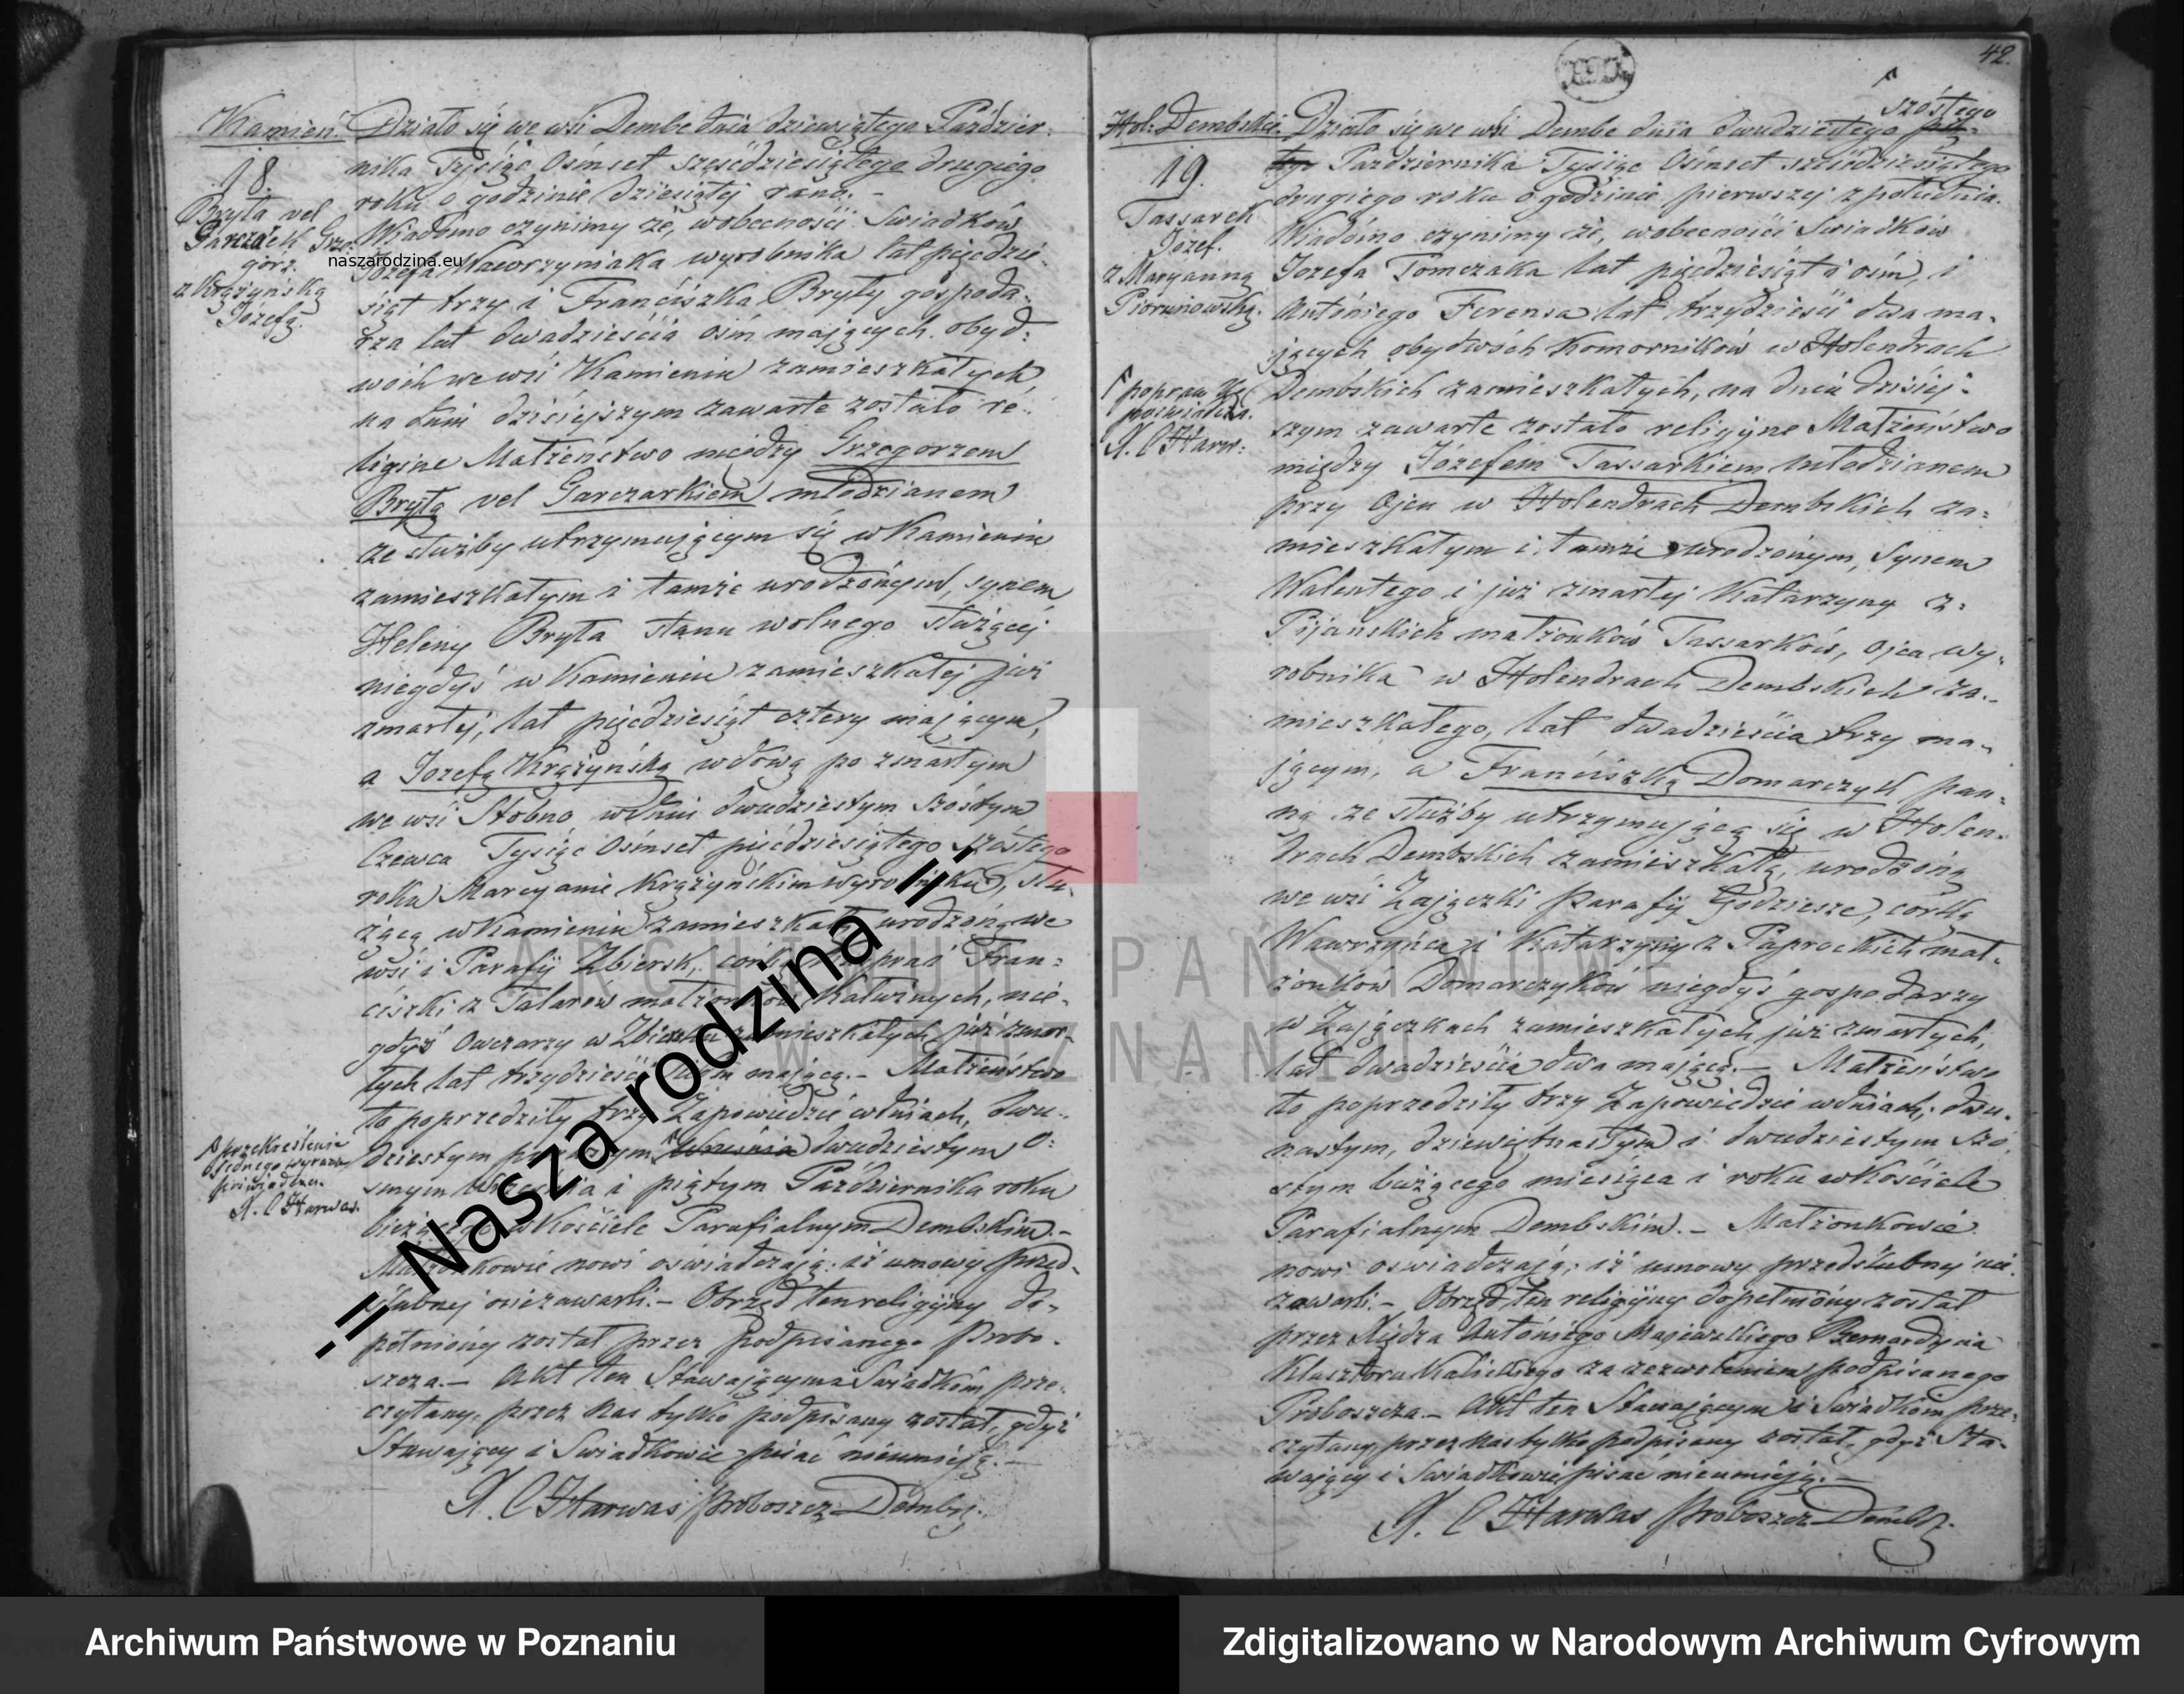 Kamień.
18.
Bryła vel
Garczarek Grze:
gorz.
z Krążyńską
Józefą.
Działo się we wsi Dembe dnia dziewiątego Paździer:
nika Tysiąc Ośmset sześćdziesiątego drugiego
roku o godzinie dziesiątej rano. -
Wiadomo czynimy że, wobecności Swiadków
naszarodzina.eu
Józefa Wawrzyniaka wyrobnika lat pięćdzie:
siąt trzy i Franciszka Bryły gospoda:
rza lat dwadzieścia ośm mających. obyd:
wóch we wsi Kamieniu zamieszkałych,
na dniu dzisiejszym zawarte zostało re:
ligine Małżeństwo między Grzegorzem
Bryłą vel Garczarkiem młodzianem
ze służby utrzymującym się w Kamieniu
zamieszkałym i tamże urodzonym, synem
Heleny Bryła stanu wolnego służącej
niegdyś w Kamieniu zamieszkałej już
zmarłej, lat pięćdziesiąt cztery mającym,
a Jozefą Krążyńską wdową po zmarłym
we wsi Stobno w dniu dwudziestym szóstym
Czerwca Tysiąc Ośmset pięćdziesiątego szóstego
roku Marcyanie Krążyńskim wyrobniku, słu:
żącą w Kamieniu zamieszkałą urodzoną we
wsi i Parafij Zbiersk, córką Franciszki z Talarów małżonków Kałużnych, nie:
gdyś Owczarzy w Zbiersku zamieszkałych już zmar:
łych lat trzydzieści mającą. - Małżeństwo
to poprzedziły trzy Zapowiedzie w dniach, dwu:
dziestym pierwszym Września dwudziestym ó:
smym Września i piątym Października roku
bieżącego w Kościele Parafialnym Dembskim. -
Małżonkowie nowi oświadczają: iż umowy przed:
ślubnej niezawarli. - Obrzęd ten religijny do:
pełniony został przez podpisanego Probo:
szcza. - Akt ten Stawającym i Swiadkom prze:
czytany, przez Nas tylko podpisany został, gdyż
Stawający i Swiadkowie pisać nieumieją. -
X. C Harwas Proboszcz Demby.
przekreślenie
jednego wyrazu
poświadcza.
X. C Harwas.
-= Nasza rodzina =-
42.
Hol: Dembskie.
19.
Tassarek
Józef.
z Maryanną
Piorunowską.
popraw.
poświadcza.
X. C Harw:
szóstego
Działo się we wsi Dembe dnia dwudziestego pią:
tego Października Tysiąc Ośmset sześćdziesiątego
drugiego roku o godzinie pierwszej z południa.
Wiadomo czynimy że, wobecności Swiadków
Jozefa Tomczaka lat pięćdziesiąt i ośm, i
Antoniego Ferensa lat trzydzieści dwa ma:
jących obydwóch Komorników w Holendrach
Dembskich zamieszkałych, na dniu dzisiej:
szym zawarte zostało religijne Małżeństwo
między Józefem Tassarkiem młodzianem
przy Ojcu w Holendrach Dembskich za:
mieszkałym i tamże urodzonym, Synem
Walentego i już zmarłej Katarzyny z
Pijańskich małżonków Tassarków, ojca wy:
robnika w Holendrach Dembskich za:
mieszkałego, lat dwadzieścia trzy ma:
jącym, a Franciszką Domarczyk pan:
ną ze służby utrzymującą się w Holen:
drach Dembskich zamieszkałą, urodzoną
we wsi Zajączki Parafij Godziesze, córką
Wawrzyńca i Katarzyny z Paprockich mał:
żonków Domarczyków niegdyś gospodarzy
w Zajączkach zamieszkałych już zmarłych,
lat dwadzieścia dwa mającą. - Małżeństwo
to poprzedziły trzy Zapowiedzie w dniach, dwu:
nastym, dziewiętnastym i dwudziestym szó:
stym bieżącego miesiąca i roku w Kościele
Parafialnym Dembskim. - Małżonkowie
nowi oświadczają, iż umowy przedślubnej nie:
zawarli. - Obrzęd ten religijny dopełniony został
przez Xiędza Antoniego Majewskiego Bernardyna
Klasztoru Kaliskiego za zezwoleniem podpisanego
Proboszcza. - Akt ten Stawającym i Swiadkom prze:
czytany, przez Nas tylko podpisany został, gdyż Sta:
wający i Swiadkowie pisać nieumieją. -
X. C Harwas Proboszcz Demby.
ARCHIWUM PAŃSTWOWE
W POZNANIU
Archiwum Państwowe w Poznaniu
Zdigitalizowano w Narodowym Archiwum Cyfrowym